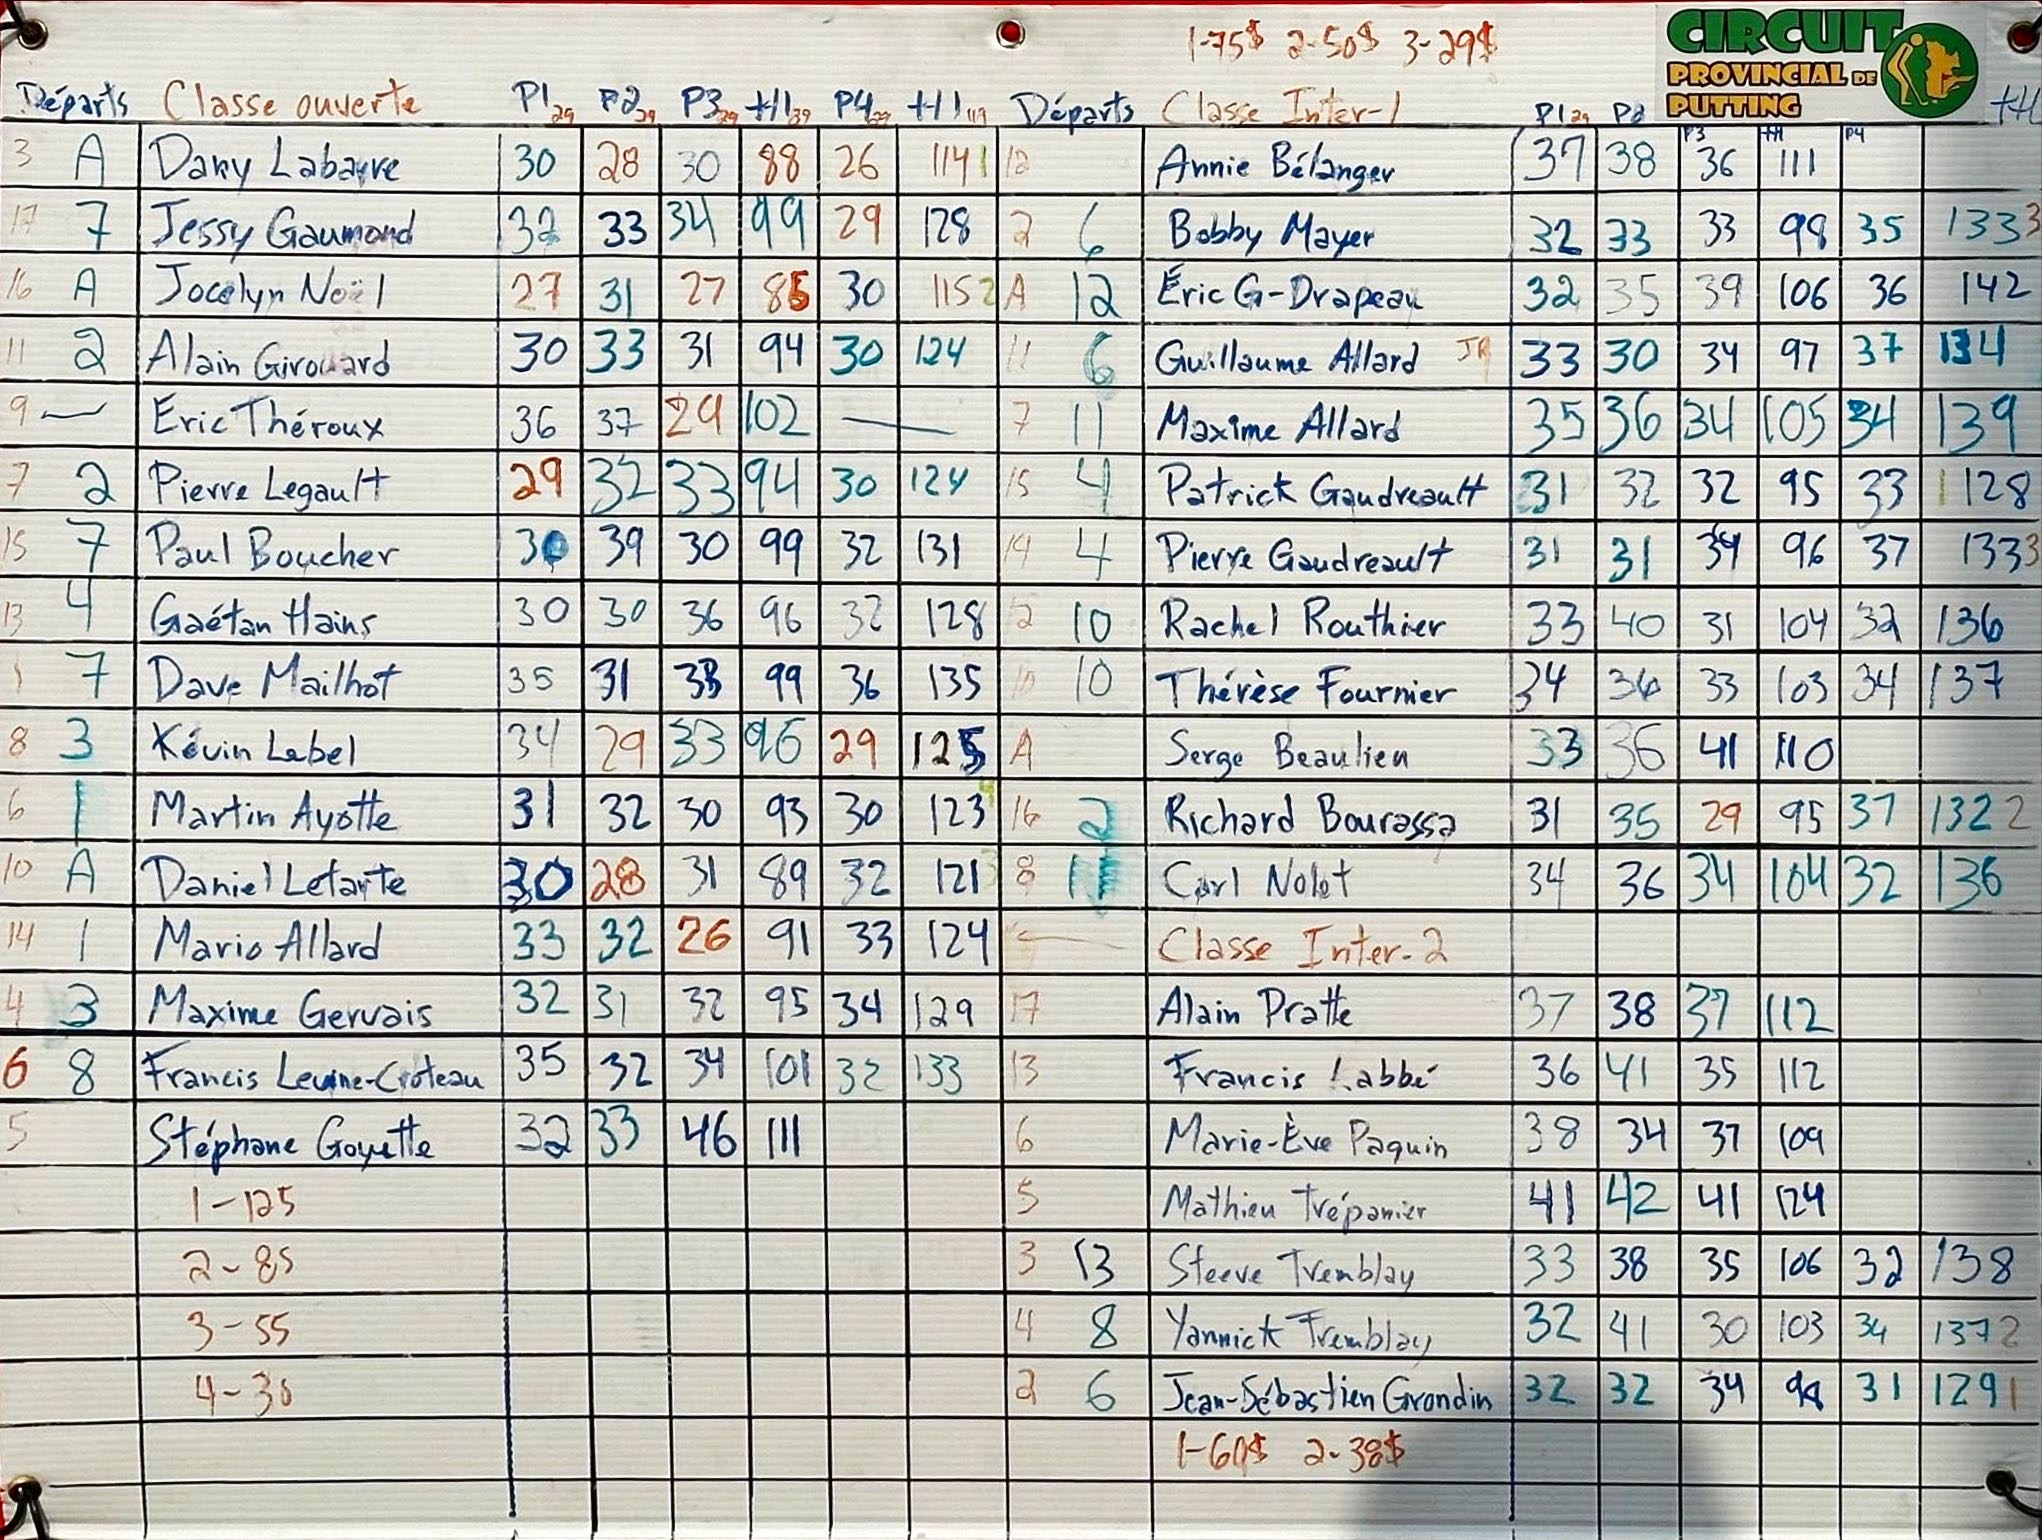 1-75$ 2-50$ 3-29$
CIRCUIT
PROVINCIAL DE
PUTTING
Départs Classe ouverte P1 29 P2 29 P3 29 +H 89 P4 29 +H 119 Départs Classe Inter-1 P1 29 P2 P3 +H P4 +H
3 A Dany Labarre 30 28 30 88 26 114 1 12 Annie Bélanger 37 38 36 111
17 7 Jessy Gaumond 32 33 34 99 29 128 2 6 Bobby Mayer 32 33 33 98 35 133 3
16 A Jocelyn Noël 27 31 27 85 30 115 2 A 12 Éric G-Drapeau 32 35 39 106 36 142
11 2 Alain Girouard 30 33 31 94 30 124 11 6 Guillaume Allard JR 33 30 34 97 37 134
9 — Eric Théroux 36 37 29 102 — 7 11 Maxime Allard 35 36 34 105 34 139
7 2 Pierre Legault 29 32 33 94 30 124 15 4 Patrick Gaudreault 31 32 32 95 33 1 128
15 7 Paul Boucher 30 39 30 99 32 131 14 4 Pierre Gaudreault 31 31 34 96 37 133 3
13 4 Gaétan Hains 30 30 36 96 32 128 12 10 Rachel Routhier 33 40 31 104 32 136
1 7 Dave Mailhot 35 31 33 99 36 135 10 10 Thérèse Fournier 34 36 33 103 34 137
8 3 Kévin Lebel 34 29 33 96 29 125 A Serge Beaulieu 33 36 41 110
6 1 Martin Ayotte 31 32 30 93 30 123 4 16 2 Richard Bourassa 31 35 29 95 37 132 2
10 A Daniel Letarte 30 28 31 89 32 121 3 8 11 Carl Nolet 34 36 34 104 32 136
14 1 Mario Allard 33 32 26 91 33 124 Classe Inter-2
4 3 Maxime Gervais 32 31 32 95 34 129 17 Alain Pratte 37 38 37 112
6 8 Francis Levine-Croteau 35 32 34 101 32 133 13 Francis Labbé 36 41 35 112
5 Stéphane Goyette 32 33 46 111 6 Marie-Ève Paquin 38 34 37 109
1-125 5 Mathieu Trépanier 41 42 41 124
2-85 3 13 Steeve Tremblay 33 38 35 106 32 138
3-55 4 8 Yannick Tremblay 32 41 30 103 34 137 2
4-30 2 6 Jean-Sébastien Grondin 32 32 34 98 31 129 1
1-60$ 2-38$